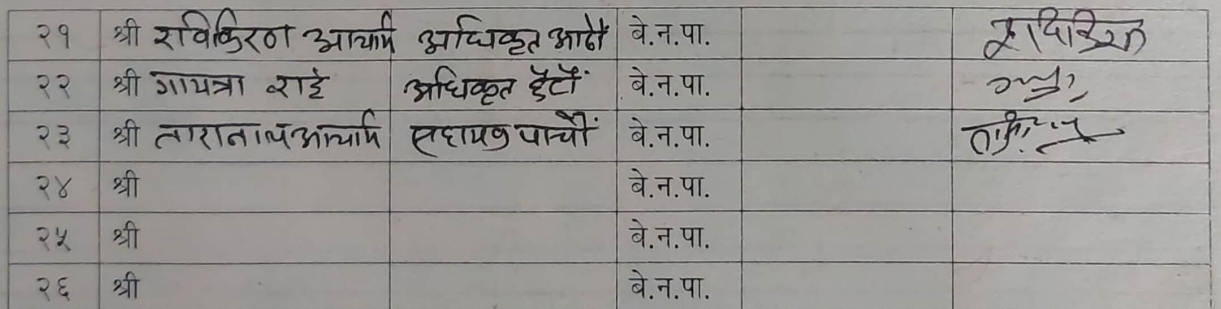 २१ श्री रविकिरण आचार्य अधिकृत आठौं बे.न.पा.
२२ श्री गायत्रा राई अधिकृत छैटौं बे.न.पा.
२३ श्री तारानाथ आचार्य सहायक पाचौं बे.न.पा.
२४ श्री बे.न.पा.
२५ श्री बे.न.पा.
२६ श्री बे.न.पा.